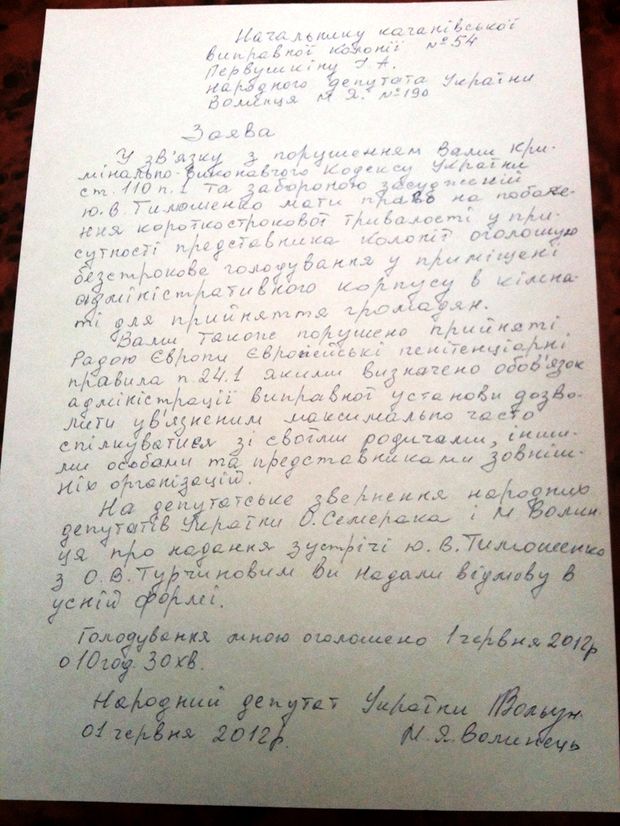 Начальнику качанівської
виправної колонії №54
Первушкіну І.А.
народного депутата України
Волинця М.Я. №190
Заява
У зв'язку з порушенням Вами кри-
мінально-виконавчого Кодексу України
ст. 110 п.1 та забороною засудженій
Ю.В.Тимошенко мати право на побаче-
ння короткострокової тривалості у при-
сутності представника колонії оголошую
безстрокове голодування у приміщені
адміністративного корпусу в кімна-
ті для прийняття громадян.
Вами також порушено прийняті
Радою Європи Європейські пенітенціарні
правила п.24.1 якими визначено обов'язок
адміністрації виправної установи дозво-
лити ув'язненим максимально часто
спілкуватися зі своїми родичами, інши-
ми особами та представниками зовніш-
ніх організацій.
На депутатське звернення народних
депутатів України О.Семерака і М Волин-
ця про надання зустрічі Ю.В.Тимошенко
з О.В.Турчиновим Ви надали відмову в
усній формі.
Голодування мною оголошено 1 червня 2012р
о 10 год. 30 хв.
Народний депутат України
01 червня 2012р. М.Я.Волинець